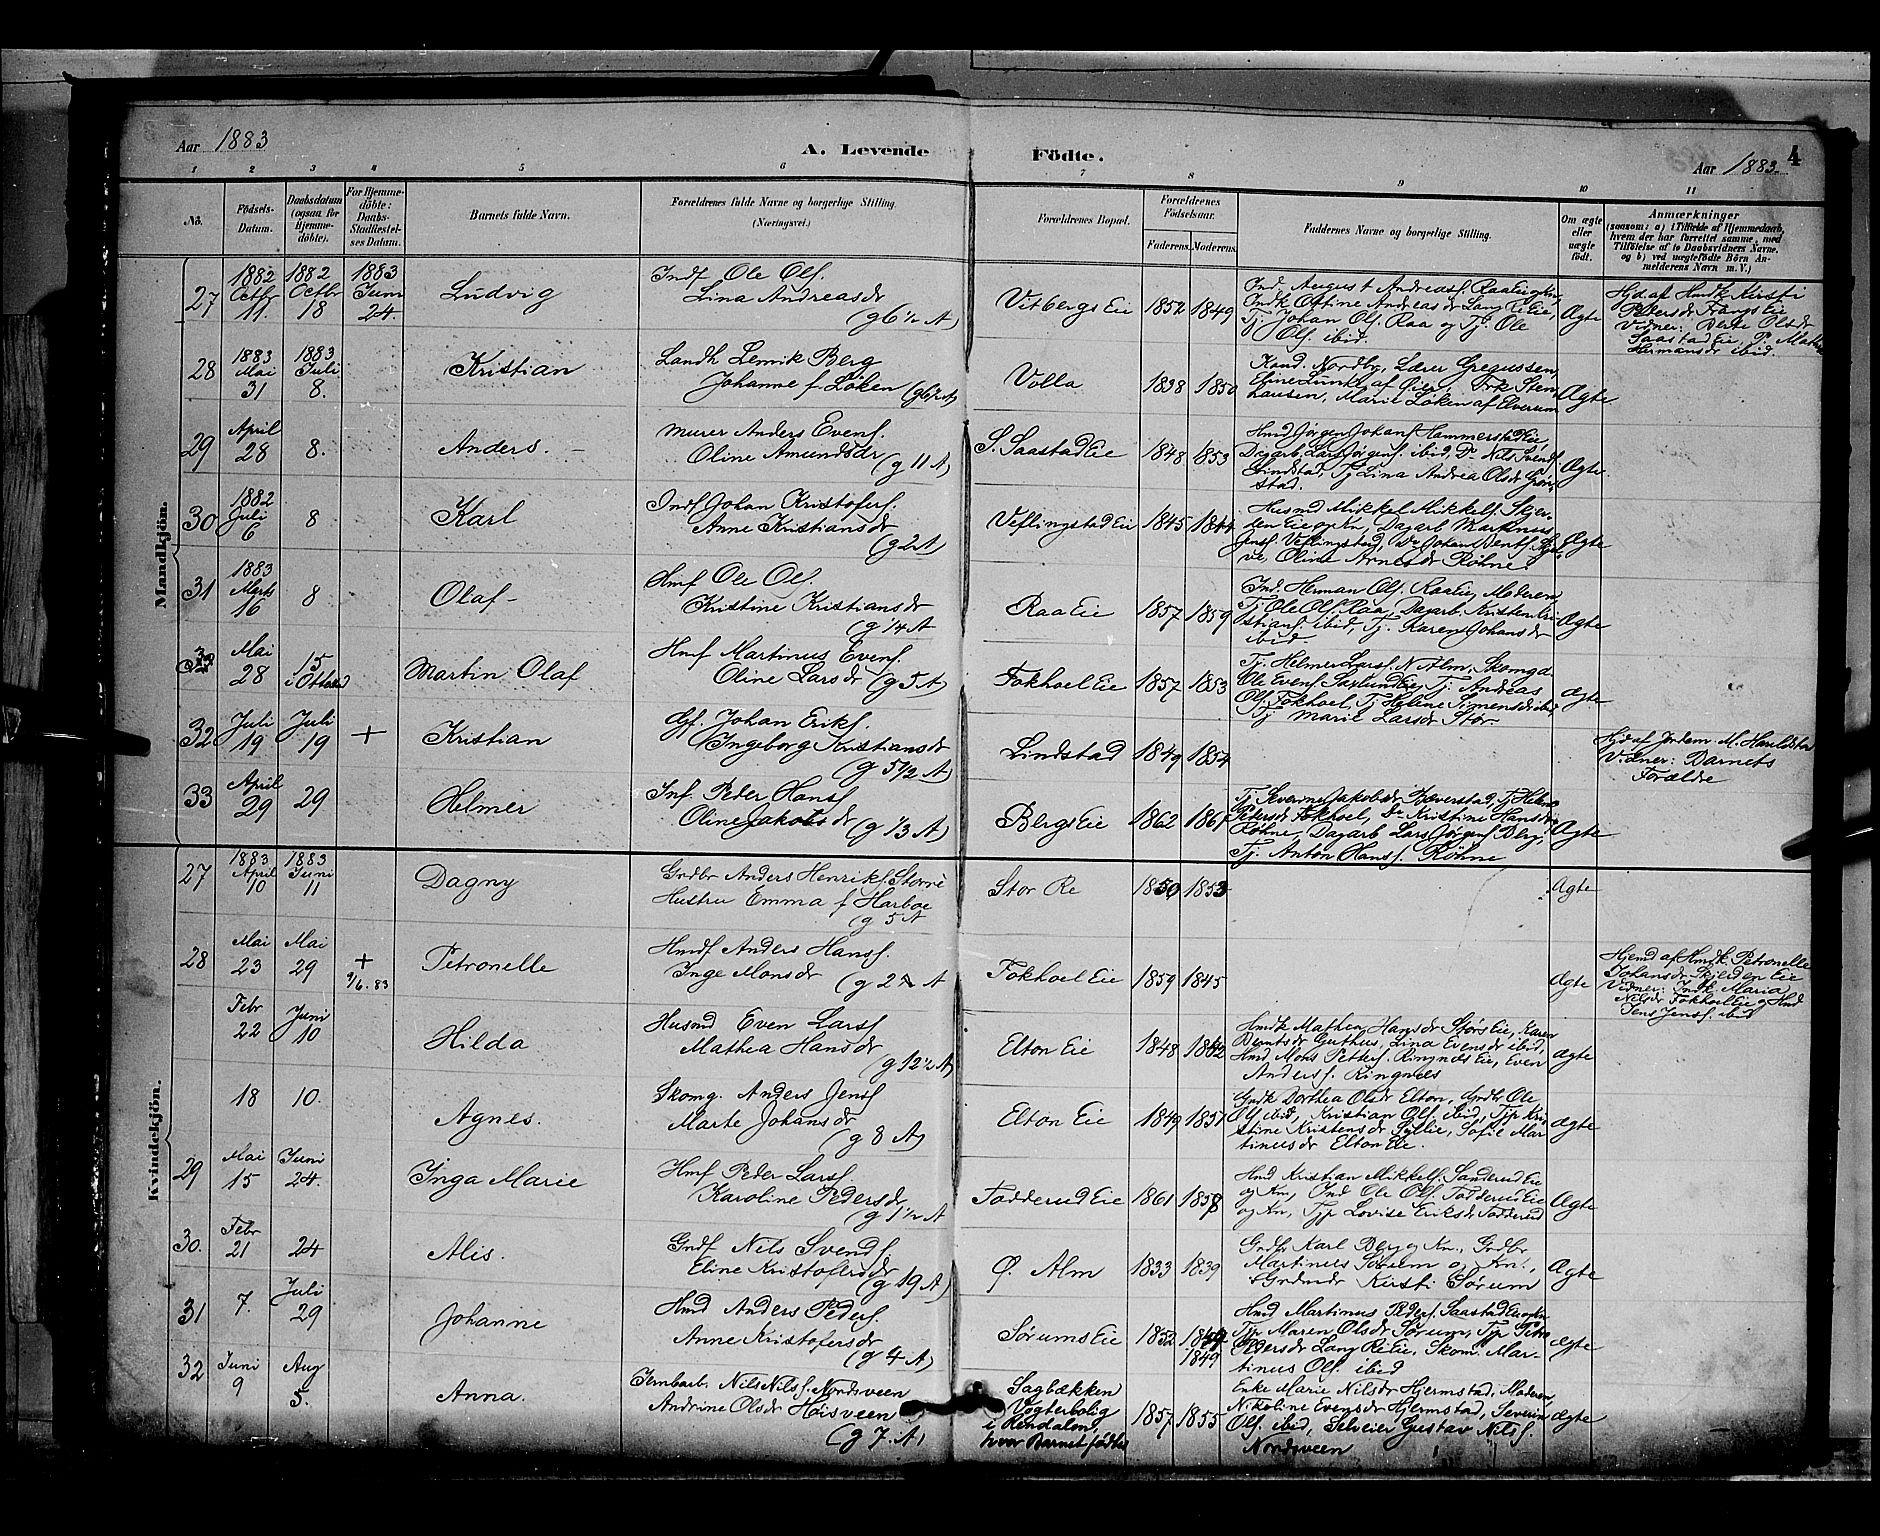 Aar 1883
A. Levende Födte.
4
Aar 1883.
1 2 3 4 5 6 7 8 9 10 11
No.
Födsels-
Datum.
Daabsdatum
(ogsaa for
Hjemme-
döbte).
For Hjemme-
döbte:
Daabs-
Stadfæstel-
ses Datum.
Barnets fulde Navn.
Forældrenes fulde Navne og borgerlige Stilling.
(Næringsvei.)
Forældrenes Bopæl.
Forældrenes
Födselsaar.
Faderens. Moderens.
Faddernes Navne og borgerlige Stilling.
Om ægte
eller
uægte
födt.
Anmærkninger
(saasom: a) i Tilfælde af Hjemmedaab,
hvem der har forrettet samme, med
Tilföielse af to Daabsvidners Navne,
og b) ved uægtefödte Börn An-
melderens Navn m. V.)
Mandkjön.
27
1882
Octbr
11.
1882
Octbr
18
1883
Juni
24.
Ludvig
Indf Ole Olf.
Lina Andreasdr
(g 6 1/2 A)
Vitbergs Eie
1852 1849
Ind. August Andreasf. Raaeie
Indk Ottine Andreasdr Lang Re Eie,
Tj. Johan Olf. Raa og Tj. Ole
Olf. ibid.
Ægte
Hjd. af Hmdk Kirsti
Pedersdr Frangs Eie
Vidner: Berte Olsdr
Saastad Eie, P. Math
Hermansdr ibid.
28
1883
Mai
31
1883
Juli
8.
Kristian
Landh Lemik Berg
Johanne f Løken
Volla
1838 1850
Kand. Nordby, Lærer Gregussen,
Eline Lunke af Øier, Frk Sten
hausen, Marie Løken af Elverum
Ægte
29
April
28
8.
Anders.
Murer Anders Evenf.
Oline Amundsdr
(g 11 A)
S. Saastad Eie
1848 1853
Hmd Jørgen Johanf Hammerstad Eie,
Dagarb. Lars Jørgenf. ibid, Do Nils Svendf.
Lindstad, Tj Lina Andrea Olsdr Grøn
stad.
Ægte
30
1882
Juli
6
8
Karl
Indf Johan Kristoferf.
Anne Kristiansdr
(g 2 A)
Veflingstad Eie
1845 1844
Husmd Mikkel Mikkelf. Skjer-
den Eie og Kn, Dagarb Martinus
Jensf. Veflingstad, Do Johan Jensf.
ve, Olina Arnesdr Røhne.
Ægte
31
1883
Marts
16
8
Olaf
Hmf Ole Olf.
Kristine Kristiansdr
(g 1/4 A
Raa Eie
1857 1859
Ind. Herman Olf. Raaeie, Moderen
Tj Ole Olf. Raa, Dagarb. Kristen Kri
stianf. ibid, Tj. Karen Johansdr
ibid.
Ægte
Mai
28
15
i Ottestad
Martin Olaf
Hmf Martinus Evenf.
Oline Larsdr (g 5 A)
Fokhoel Eie
1857 1853
Tj. Helmer Larsf. N. Alm, Skomgd
Ole Evenf Saxlund Eie, Tj. Andreas
Olf. Fokhoel, Tj Helene Simensdr ibid,
Tj Marie Larsdr Stor.
Ægte
32
Juli
19
Juli
19
+
Kristian
Gf. Johan Erikf.
Ingeborg Kristiansdr
(g 5 1/2 A)
Lindstad
1849 1854
Hjd af Jordem M. Haraldstad
Vidner: Barnets
Forældre
33
April
29
29
Helmer
Inf. Peder Hansf
Oline Jakobsdr (g 1/3 A)
Bergs Eie
1862 1861
Tj Severine Jakobsdr Bæverstad, Tj Helene
Pedersdr Fokhoel, Do Kristine Hansdr
Røhne, Dagarb Lars Jørgenf Berg,
Tj. Anton Hansf. Røhne
Ægte
Kvindekjön.
27
1883
April
10
1883
Juni
11
Dagny
Grdbr Anders Henrikf. Storre
Hustru Emma f Harboe
(g 5 A
Stor Re
1850 1853
Ægte
28
Mai
23
Mai
29
+
9/6.83
Petronelle
Hmdf Anders Hansf.
Inge Monsdr (g 2 A
Fokhoel Eie
1859 1845
Ægte
Hjemd af Hmdk Petronelle
Johansdr Skjerden Eie
Vidner: Indk. Maria
Nilsdr Fokhoel Eie og Hmd
Jens Jensf. ibid
Febr
22
Juni
10
Hilda
Husmd Even Larsf
Mathea Hansdr
(g 12 1/2 A)
Elton Eie
1848 1842
Hmdk Mathea Hansdr Størs Eie, Karen
Berntsdr Guthus, Lina Evensdr ibid,
Hmd Mons Petterf. Ringnes Eie, Even
Andersf. Ringnes
Ægte
18
10.
Agnes.
Skomg. Anders Jensf
Marte Johansdr
(g 8 A)
Elton Eie
1849 1851
Gmdk Dorthea Olsdr Elton, Grdbr Ole
Olf ibid, Kristian Olf. ibid, Tjp Kri
stine Kristensdr Lillie, Sofie Mar
tinusdr Elton Eie.
Ægte
29
Mai
15
Juni
24.
Inga Marie
Hmf Peder Larsf.
Karoline Pedersdr
(g 1 1/2 A
Fodderud Eie
1861 1858
Hmd Kristian Mikkelf. Sanderud Eie
og Kn, Ind Ole Olf. Fodderud Eie
og Kn, Tjp Lovise Eriksdr Fodderud
Ægte
30.
Febr
21
24
Alis.
Grdf Nils Svendf.
Eline Kristofersdr
(g 19 A)
Ø. Alm
1833 1839
Grdbr Karl Berg og Kn., Grdbr
Martinus Sørum og Kn.,
Grdmdr Kirsti Sørum
Ægte
31
7.
Juli
29
Johanne
Hmd Anders Pederf.
Anne Kristofersdr
(g 4 A)
Sørums Eie
1852 1849
1849
Hmd Martinus Pederf. Saastad Eie og Kn
Tjp Maren Olsdr Sørum, Tjp Petra
Pedersdr Lang Re Eie, Skom. Mar-
tinus Olf. ibid
Ægte
32
Juni
9
Aug
5.
Anna.
Jernbarb. Nils Nilsf. Nordsveen
Andrine Olsdr Hoisveen
(g 7. A)
Sagbækken
Vogterbolig
i Rendalen
hvor Barnet fødtes
1857 1855
Enke Marie Nilsdr Hjermstad, Moderen
Nikoline Evensdr Hjermstad, Severin
Olf. ibid, Selveier Gustav Nilsf.
Nordsveen
Ægte